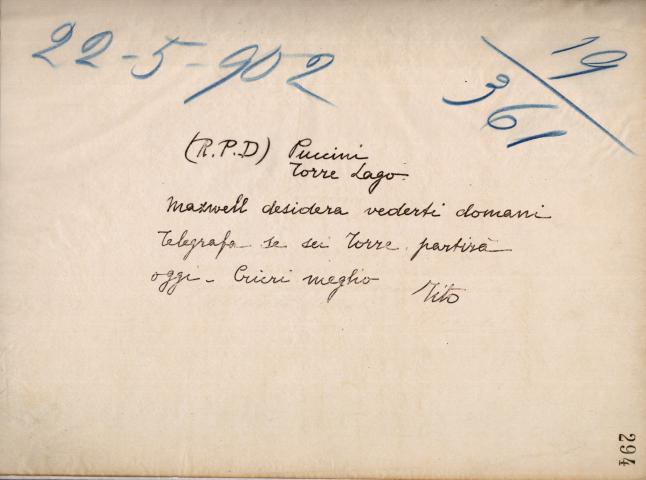 22-5-902
19/361
(R.P.D) Puccini
Torre Lago
Maxwell desidera vederti domani
Telegrafa se sei Torre, partirà
oggi - Crieri meglio Tito
294